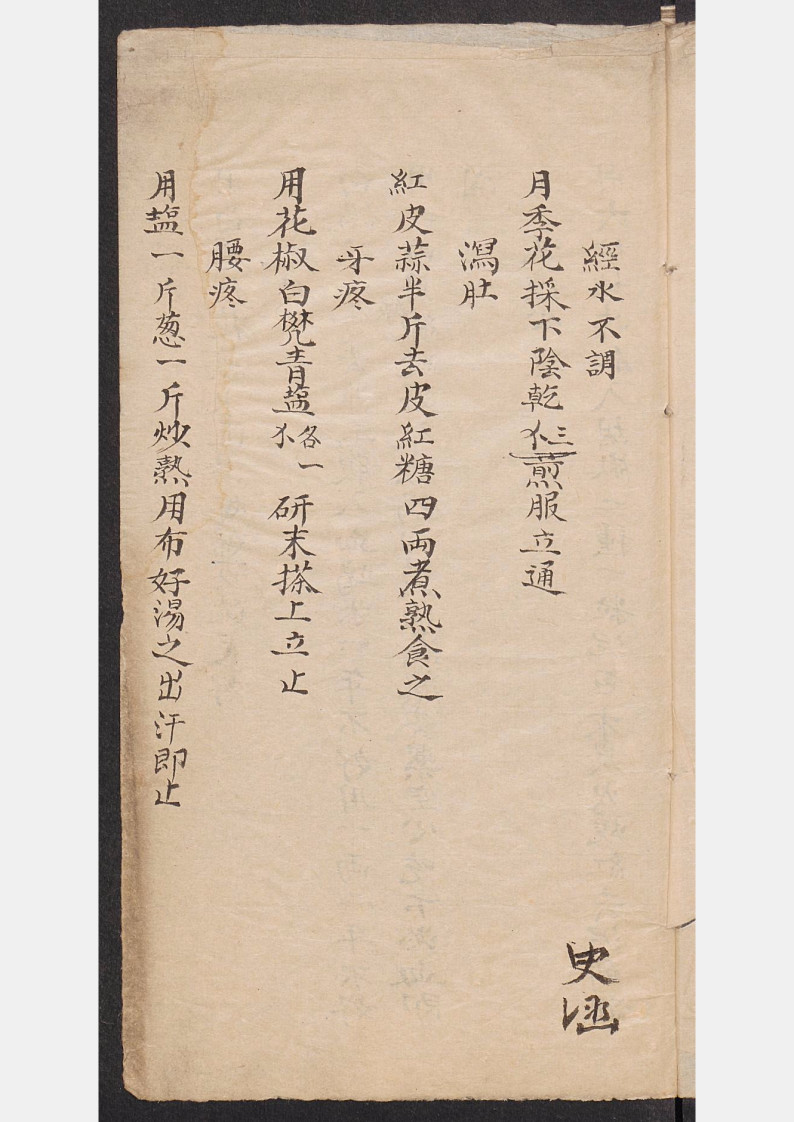 經水不調
月季花採下陰乾三煎服立通
瀉肚
紅皮蒜半斤去皮紅糖四両煮熟食之
牙疼
用花椒白礬青盐各一研末搽上立止
腰疼
用盐一斤葱一斤炒熱用布好湯之出汗即止
史